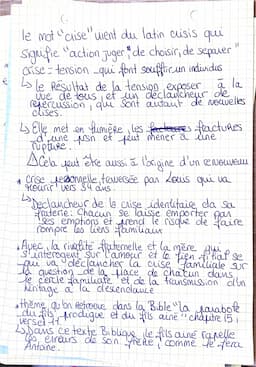 le mot "crise" vient du latin crisis qui
signifie "action juger, de choisir, de séparer"
crise = tension qui font souffrir un individus
↳ le Résultat de la tension exposer à la
vue de tous, et un déclancheur de
répercussion, qui sont autant de nouvelles
crises.
↳ Elle met en lumière, les fractures
d'une psn et peut mener à une
rupture.
⚠ Cela peut être aussi à l'origine d'un renouveau
• crise personnelle traversée par Louis qui va
mourir vers 34 ans.
↳ Déclancheur de la crise identitaire da sa
fraterie: Chacun se laisse emporter par
ses emotions et prend le risque de faire
rompre les liens familiaux
• Avec la rivalité fraternelle et la mère qui
s'interogent sur l'amour et le lien filial se
qui va déclancher la crise familiale sur
la question de la place de chacun dans
le cercle familiale et de la transmission d'un
héritage à la descendance
• thème qu'on retrouve dans la Bible "la parabole
du fils prodigue et du fils ainé" chapitre 15,
verset 11
↳ Dans ce texte Biblique, le fils ainé rapelle
les erreurs de son frère, comme le fera
Antoine.